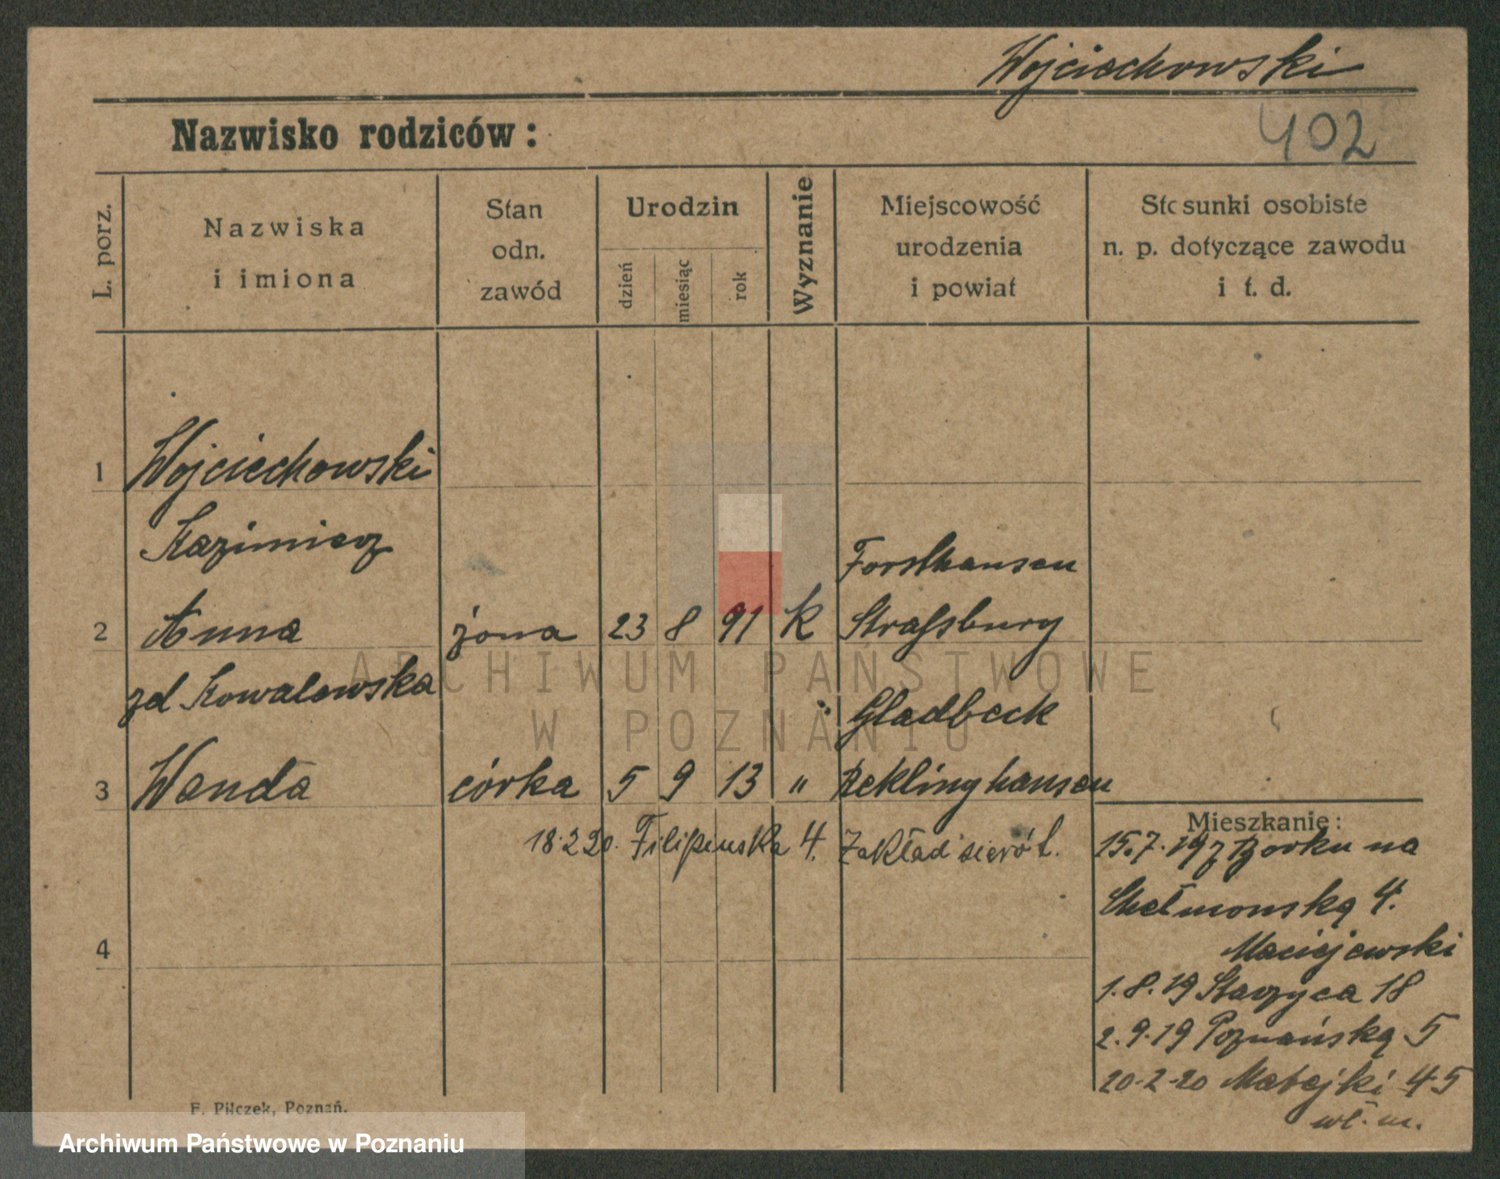 Wojciechowski
402
Nazwisko rodziców:
L. porz.
Nazwiska
i imiona
Stan
odn.
zawód
Urodzin
dzień
miesiąc
rok
Wyznanie
Miejscowość
urodzenia
i powiat
Stosunki osobiste
n. p. dotyczące zawodu
i t. d.
1 Wojciechowski
Kazimierz
Forsthausen
2 Anna żona 23 8 91 K Strassburg
zd Kowalewska
" Gladbeck
3 Wanda córka 5 9 13 " Reklinghausen
Mieszkanie:
18.2 20. Filipińska 4. Zakład sierót.
15.7.19 z Borku na
Chełmonską 4.
4
Maciejewski
1.8.19 Staszyca 18
2.9.19 Poznańską 5
20-2-20 Matejki 45
wł. m.
F. Pilczek, Poznań.
ARCHIWUM PAŃSTWOWE
W POZNANIU
Archiwum Państwowe w Poznaniu